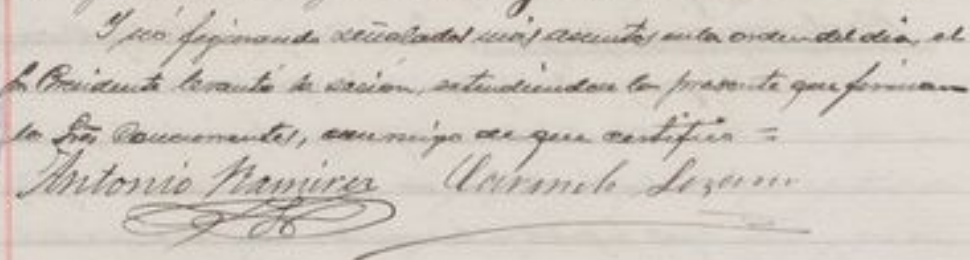 Y nó figurando señalados más asuntos en la orden del día, el
Sr. Presidente levantó la sesión, extendiendose la presente que firman
los Sres Concurrentes, conmigo de que certifico =
Antonio Ramirez Carmelo Lozano